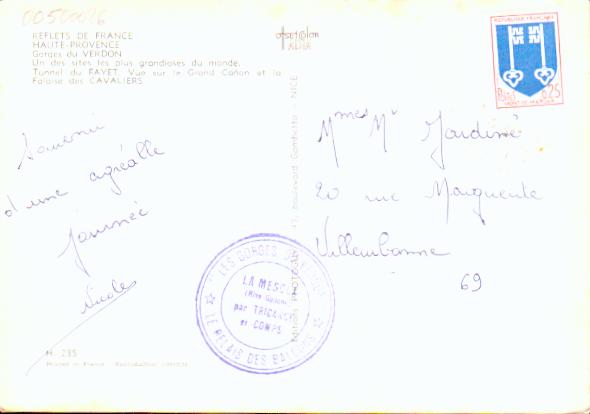 00500026
REFLETS DE FRANCE
HAUTE-PROVENCE
Gorges du VERDON
Un des sites les plus grandioses du monde.
Tunnel du FAYET. Vue sur le Grand Cañon et la
Falaise des CAVALIERS
REPUBLIQUE FRANÇAISE
0,25
MONT-DE-MARSAN
Souvenir
d'une agréable
journée
Nicole
Mmes Mr
20 rue Marguerite
Villeurbanne
69
43, Boulevard Gambetta NICE
LES GORGES DU VERDON
LA MESCLA
par TRIGANCE
et COMPS
LE RELAIS DES BALCONS
H. 235
Printed in France Reproduction interdite